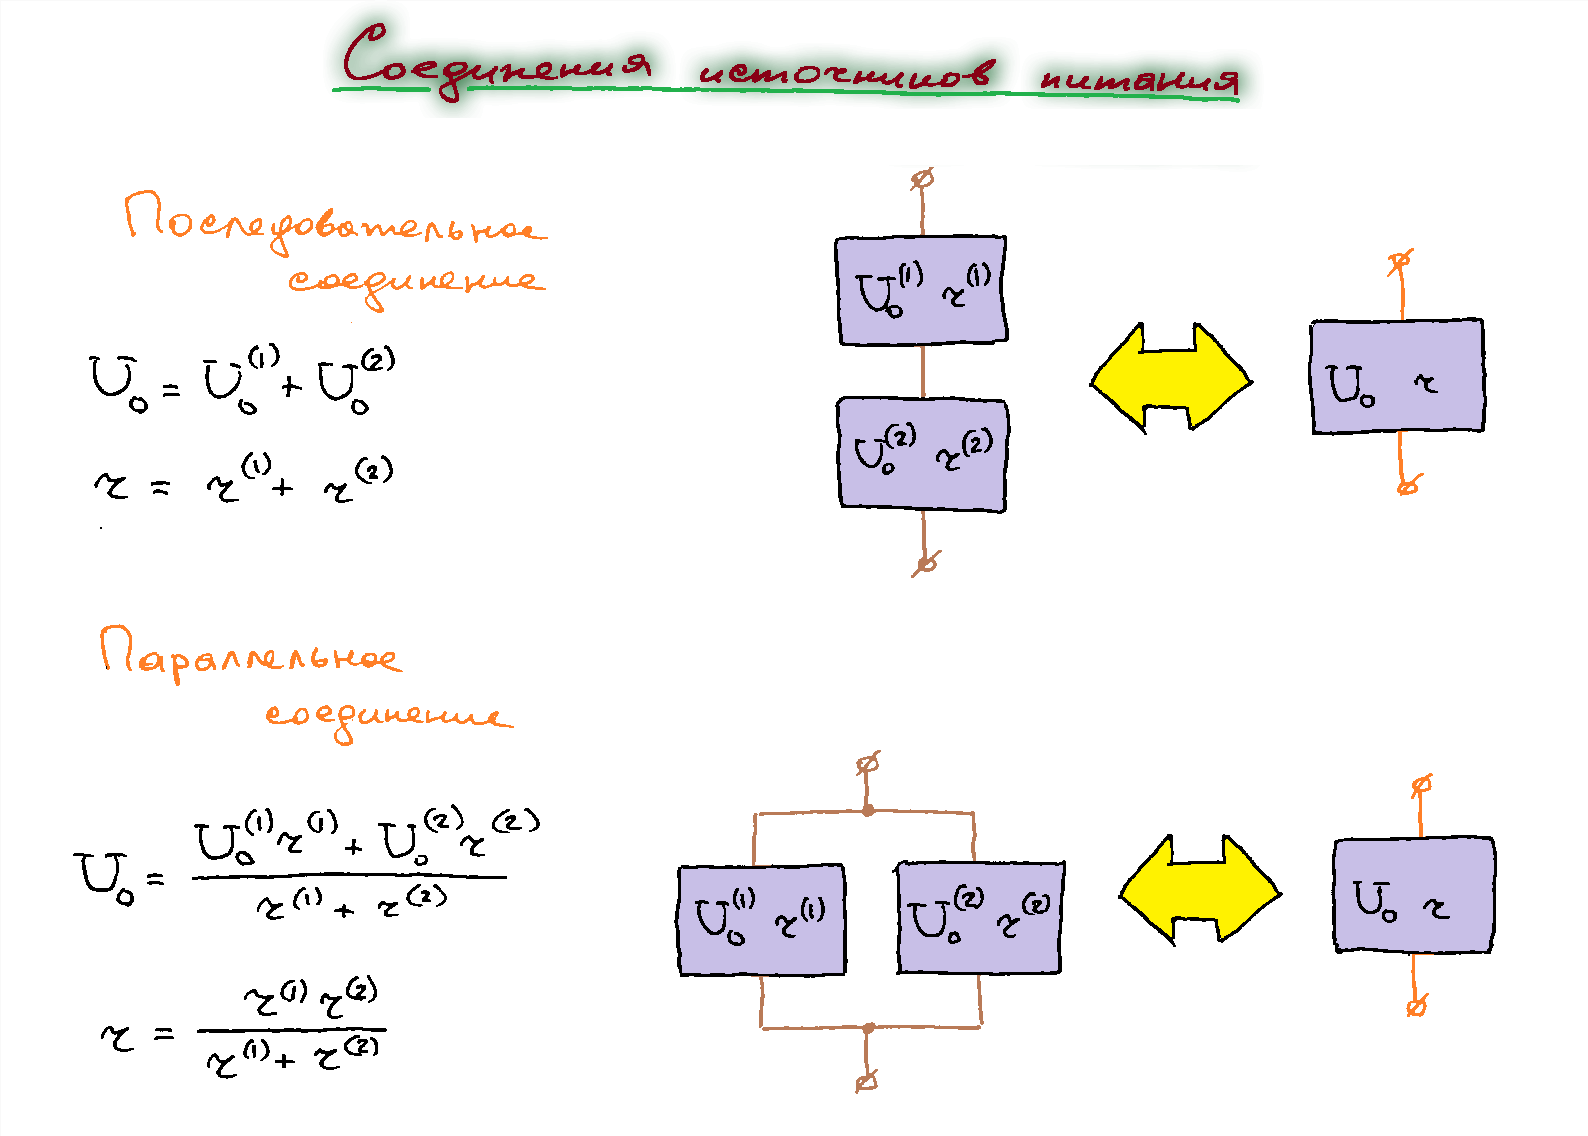 Соединения источников питания
Последовательное
соединение
U₀ = U₀⁽¹⁾ + U₀⁽²⁾
r = r⁽¹⁾ + r⁽²⁾
U₀⁽¹⁾ r⁽¹⁾
U₀⁽²⁾ r⁽²⁾
U₀ r
Параллельное
соединение
U₀ = (U₀⁽¹⁾r⁽¹⁾ + U₀⁽²⁾r⁽²⁾) / (r⁽¹⁾ + r⁽²⁾)
r = r⁽¹⁾ r⁽²⁾ / (r⁽¹⁾ + r⁽²⁾)
U₀⁽¹⁾ r⁽¹⁾
U₀⁽²⁾ r⁽²⁾
U₀ r